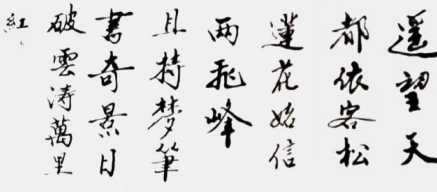 遥望天
都依客松
蓮花始信
两飛峰
且持梦筆
書奇景日
破雲涛萬里
紅